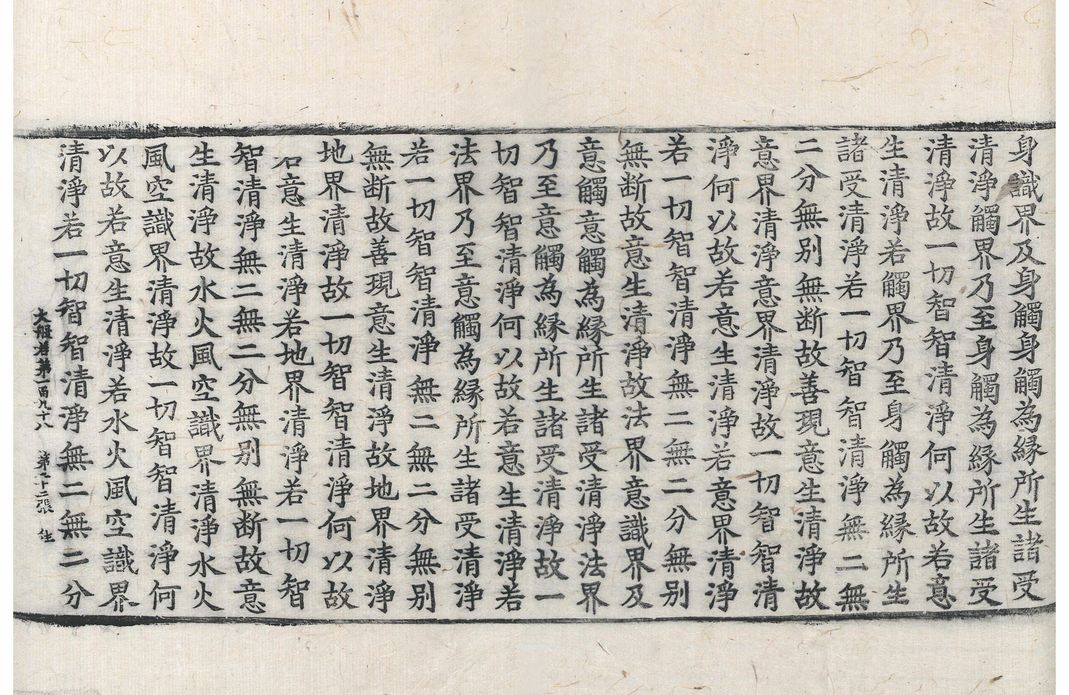 身識界及身觸身觸為縁所生諸受
清淨觸界乃至身觸為縁所生諸受
清淨故一切智智清淨何以故若意
生清淨若觸界乃至身觸為縁所生
諸受清淨若一切智智清淨無二無
二分無别無断故善現意生清淨故
意界清淨意界清淨故一切智智清
淨何以故若意生清淨若意界清淨
若一切智智清淨無二無二分無别
無断故意生清淨故法界意識界及
意觸意觸為縁所生諸受清淨法界
乃至意觸為縁所生諸受清淨故一
切智智清淨何以故若意生清淨若
法界乃至意觸為縁所生諸受清淨
若一切智智清淨無二無二分無别
無断故善現意生清淨故地界清淨
地界清淨故一切智智清淨何以故
若意生清淨若地界清淨若一切智
智清淨無二無二分無别無断故意
生清淨故水火風空識界清淨水火
風空識界清淨故一切智智清淨何
以故若意生清淨若水火風空識界
清淨若一切智智清淨無二無二分
大般若第一百九十六 第二十二張